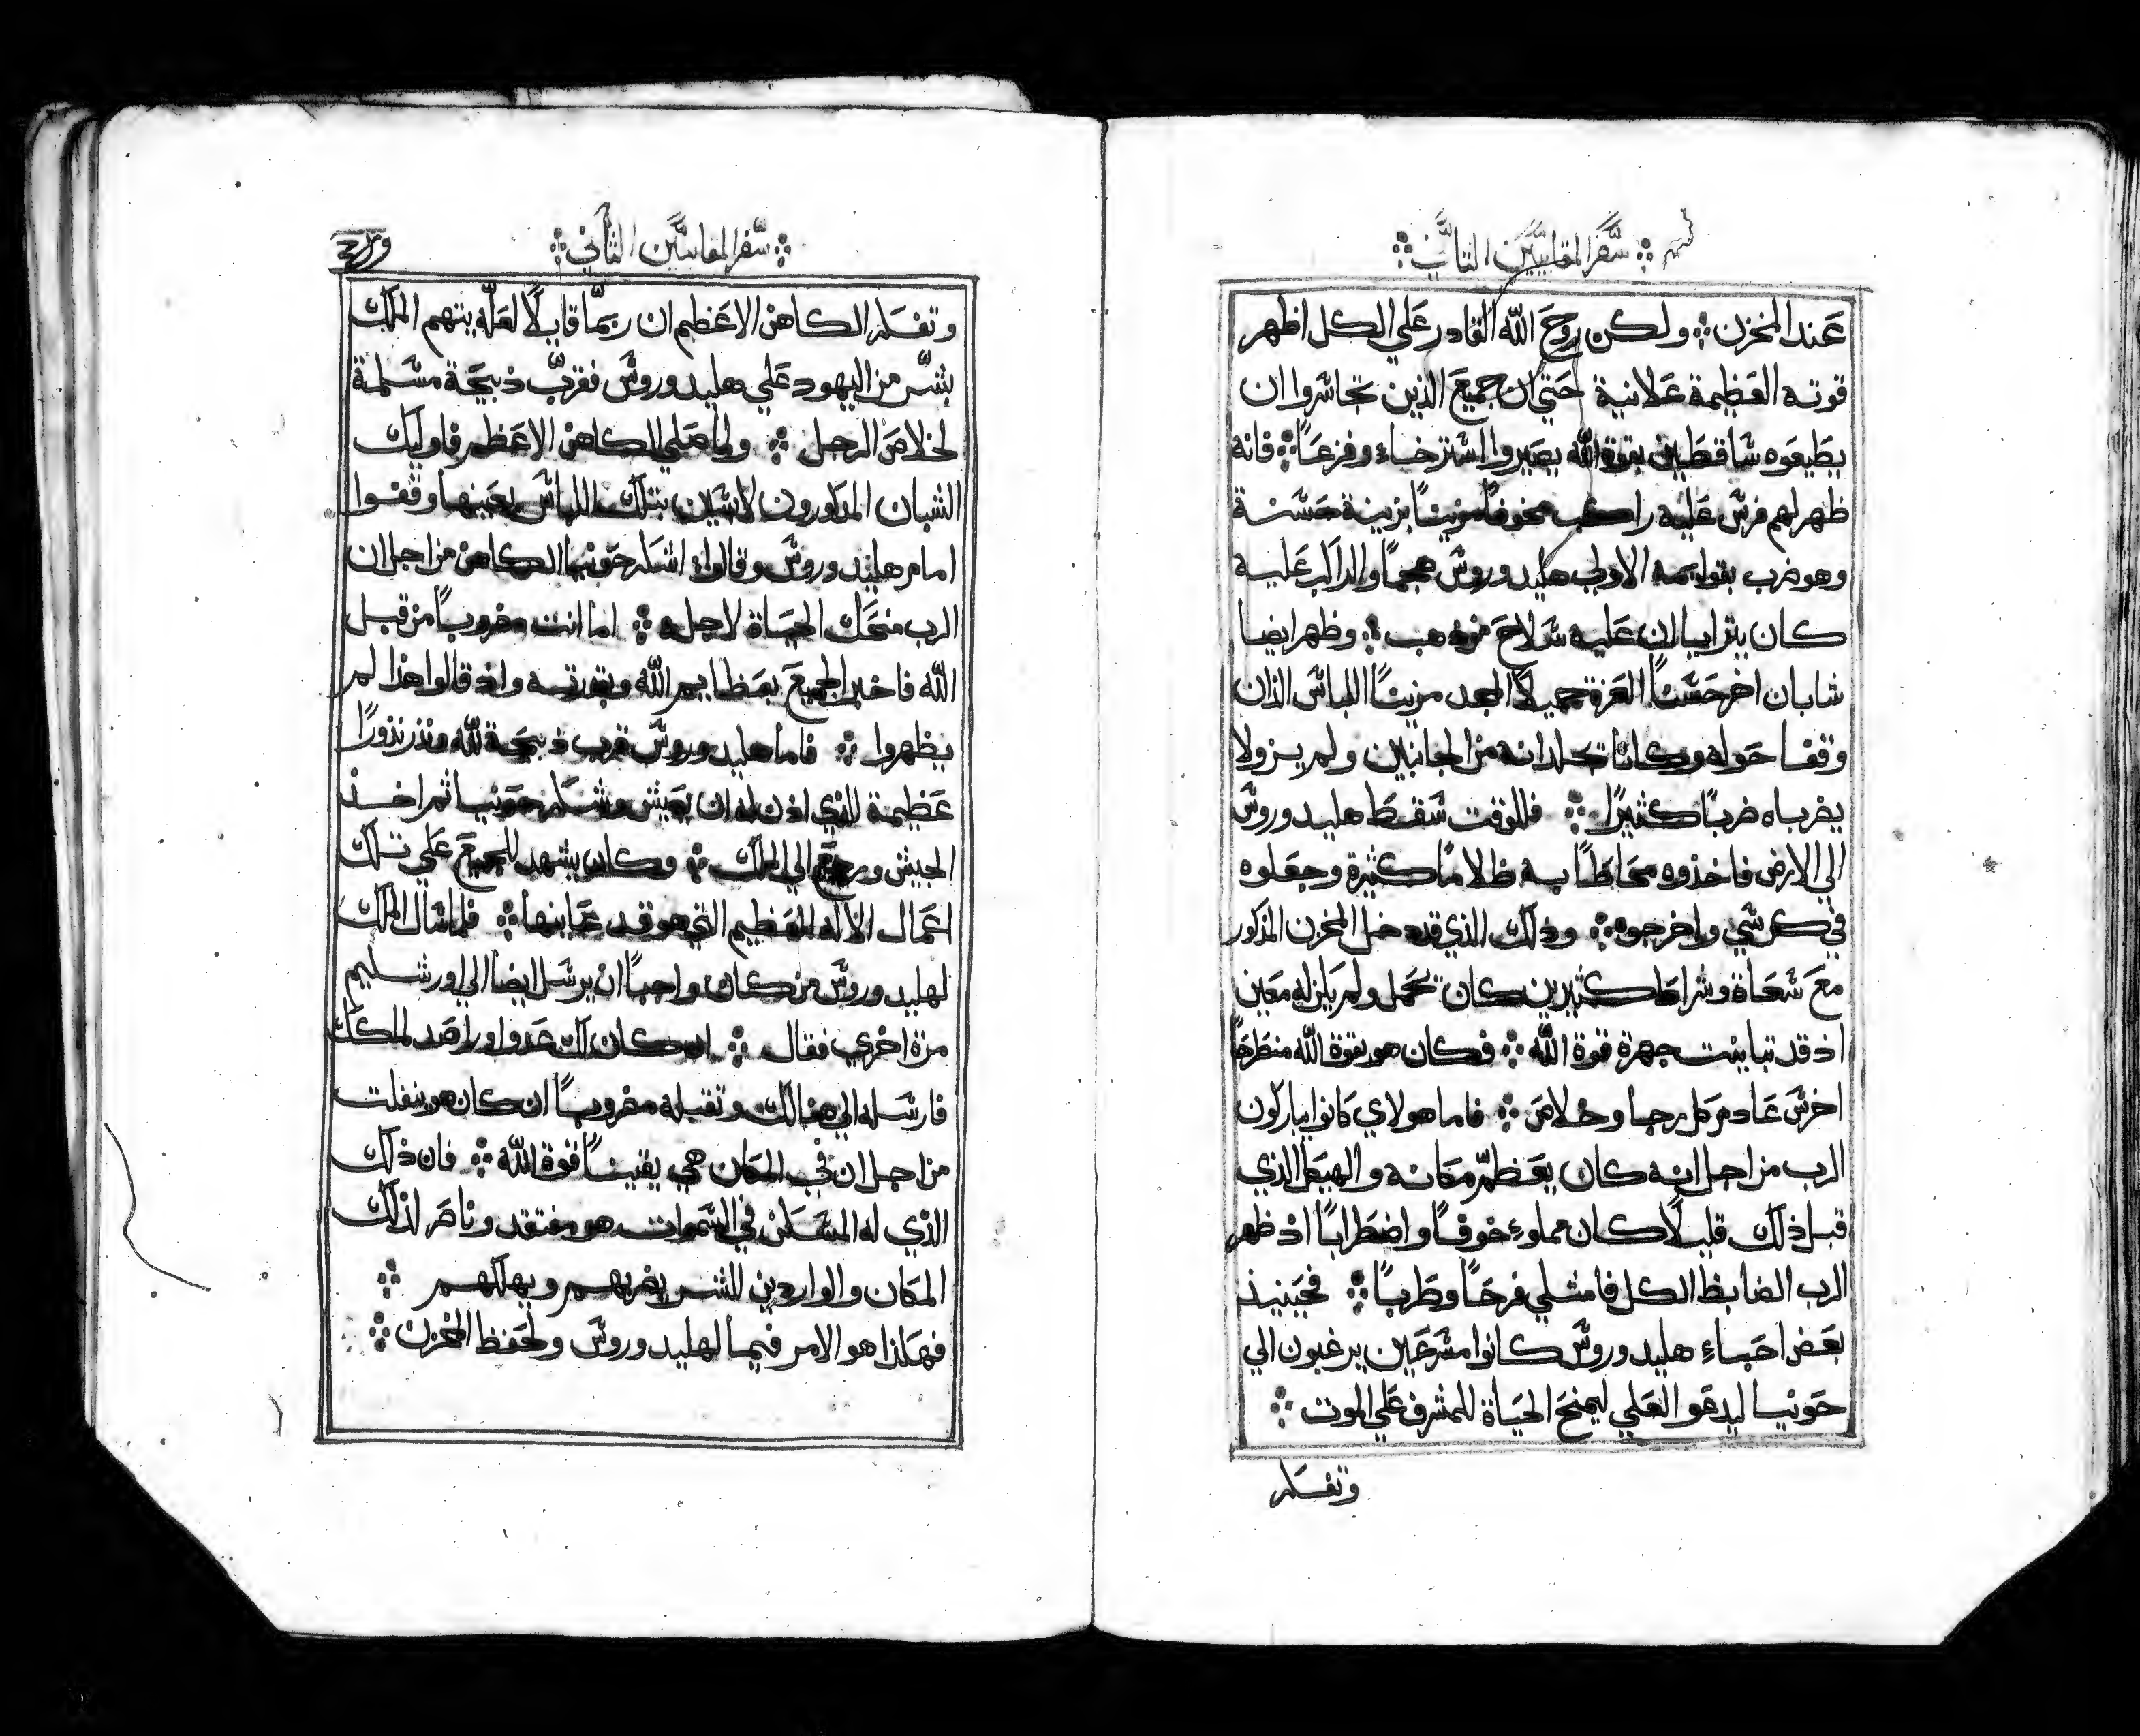 سفر المقابيين الثاني
عند المخزن ܀ ولكن روح الله القادر علي الكل اظهر
قوته العظيمة علانية حتي ان جميع الذين تجاسروا ان
يطيعوه ساقطين بقوة الله يصيروا استرخاء وفزعاً ܀ فانه
ظهر لهم فرس عليه راكب مخوفاً مزيناً بزينة حسنة
وهو ضرب بقوايمه الاولي هليدوروس هجماً والراكب عليه
كان يترايا ان عليه سلاح من ذهب ܀ وظهر ايضا
شابان اخر حسناً العزة جميلاً المجد مزيناً اللباس الذان
وقفا حوله وكانا تجلدانه من الجانبين ولم يزولا
يضرباه ضرباً كثيراً ܀ فللوقت سقط هليدوروس
الي الارض فاخذوه محاطاً به ظلاماً كثيرة وجعلوه
في كرسي واخرجوه ܀ وذلك الذي قد دخل المخزن المذكور
مع سعاة وشراط كثيرين كان تحمل ولم يكن له معين
اذ قد تباينت جهرة قوة الله ܀ فكان هو بقوة الله منطرحاً
اخرس عادم كل رجا وخلاص ܀ فاما هولاي كانوا يباركون
الرب من اجل انه كان يعظم مكانه والهيكل الذي
قبل ذلك قليلاً كان مملوء خوفاً واضطراباً اذ ظهر
الرب الضابط الكل فامتلي فرحاً وطرباً ܀ فحينيذ
بعض احباء هليدوروس كانوا مسرعين يرغبون الي
حونيا ليدعو العلي ليمنح الحياة للمشرف علي الموت ܀
وتفسكر
سفر المقابيين الثاني
وتفسكر الكاهن الاعظم ان ربما قايلاً لعله يتهم الملك
بشر من اليهود علي هليدوروس فقرب ذبيحة مسلمة
لخلاص الرجل ܀ ولما صلي الكاهن الاعظم فاوليك
الشبان المذكورون لابسين بتلك اللباس بعينها وقفوا
امام هليدوروس وقالوا اشكر حونيا الكاهن من اجل ان
الرب منحك الحياة لاجله ܀ اما انت مضروباً من قبل
الله فاخبر الجميع بعظايم الله وبقدرته واذ قالوا هذا لم
يظهروا ܀ فاما هليدوروس قرب ذبيحة لله ونذر نذوراً
عظيمة للذي اذن له ان يعيش وشكر حونيا ثم اخذ
الجيش ورجع الي الملك ܀ وكان يشهد للجميع علي تلك
اعمال الاله العظيم التي هو قد عاينها ܀ فلما سال الملك
لهليدوروس من كان واجباً ان يرسل ايضا الي اورشليم
مرة اخري فقال ܀ ان كان لك عدوا وراصد لملكك
فارسله الي هنالك وتقبله مضروباً ان كان هو ينفلت
من اجل ان في المكان هي يقيناً قوة الله ܀ فان ذلك
الذي له المسكن في السموات هو مفتقد وناصر لذلك
المكان والواردين للشر يضربهم ويهلكهم ܀
فهكذا هو الامر فيما لهليدوروس ولحفظ المخزن ܀